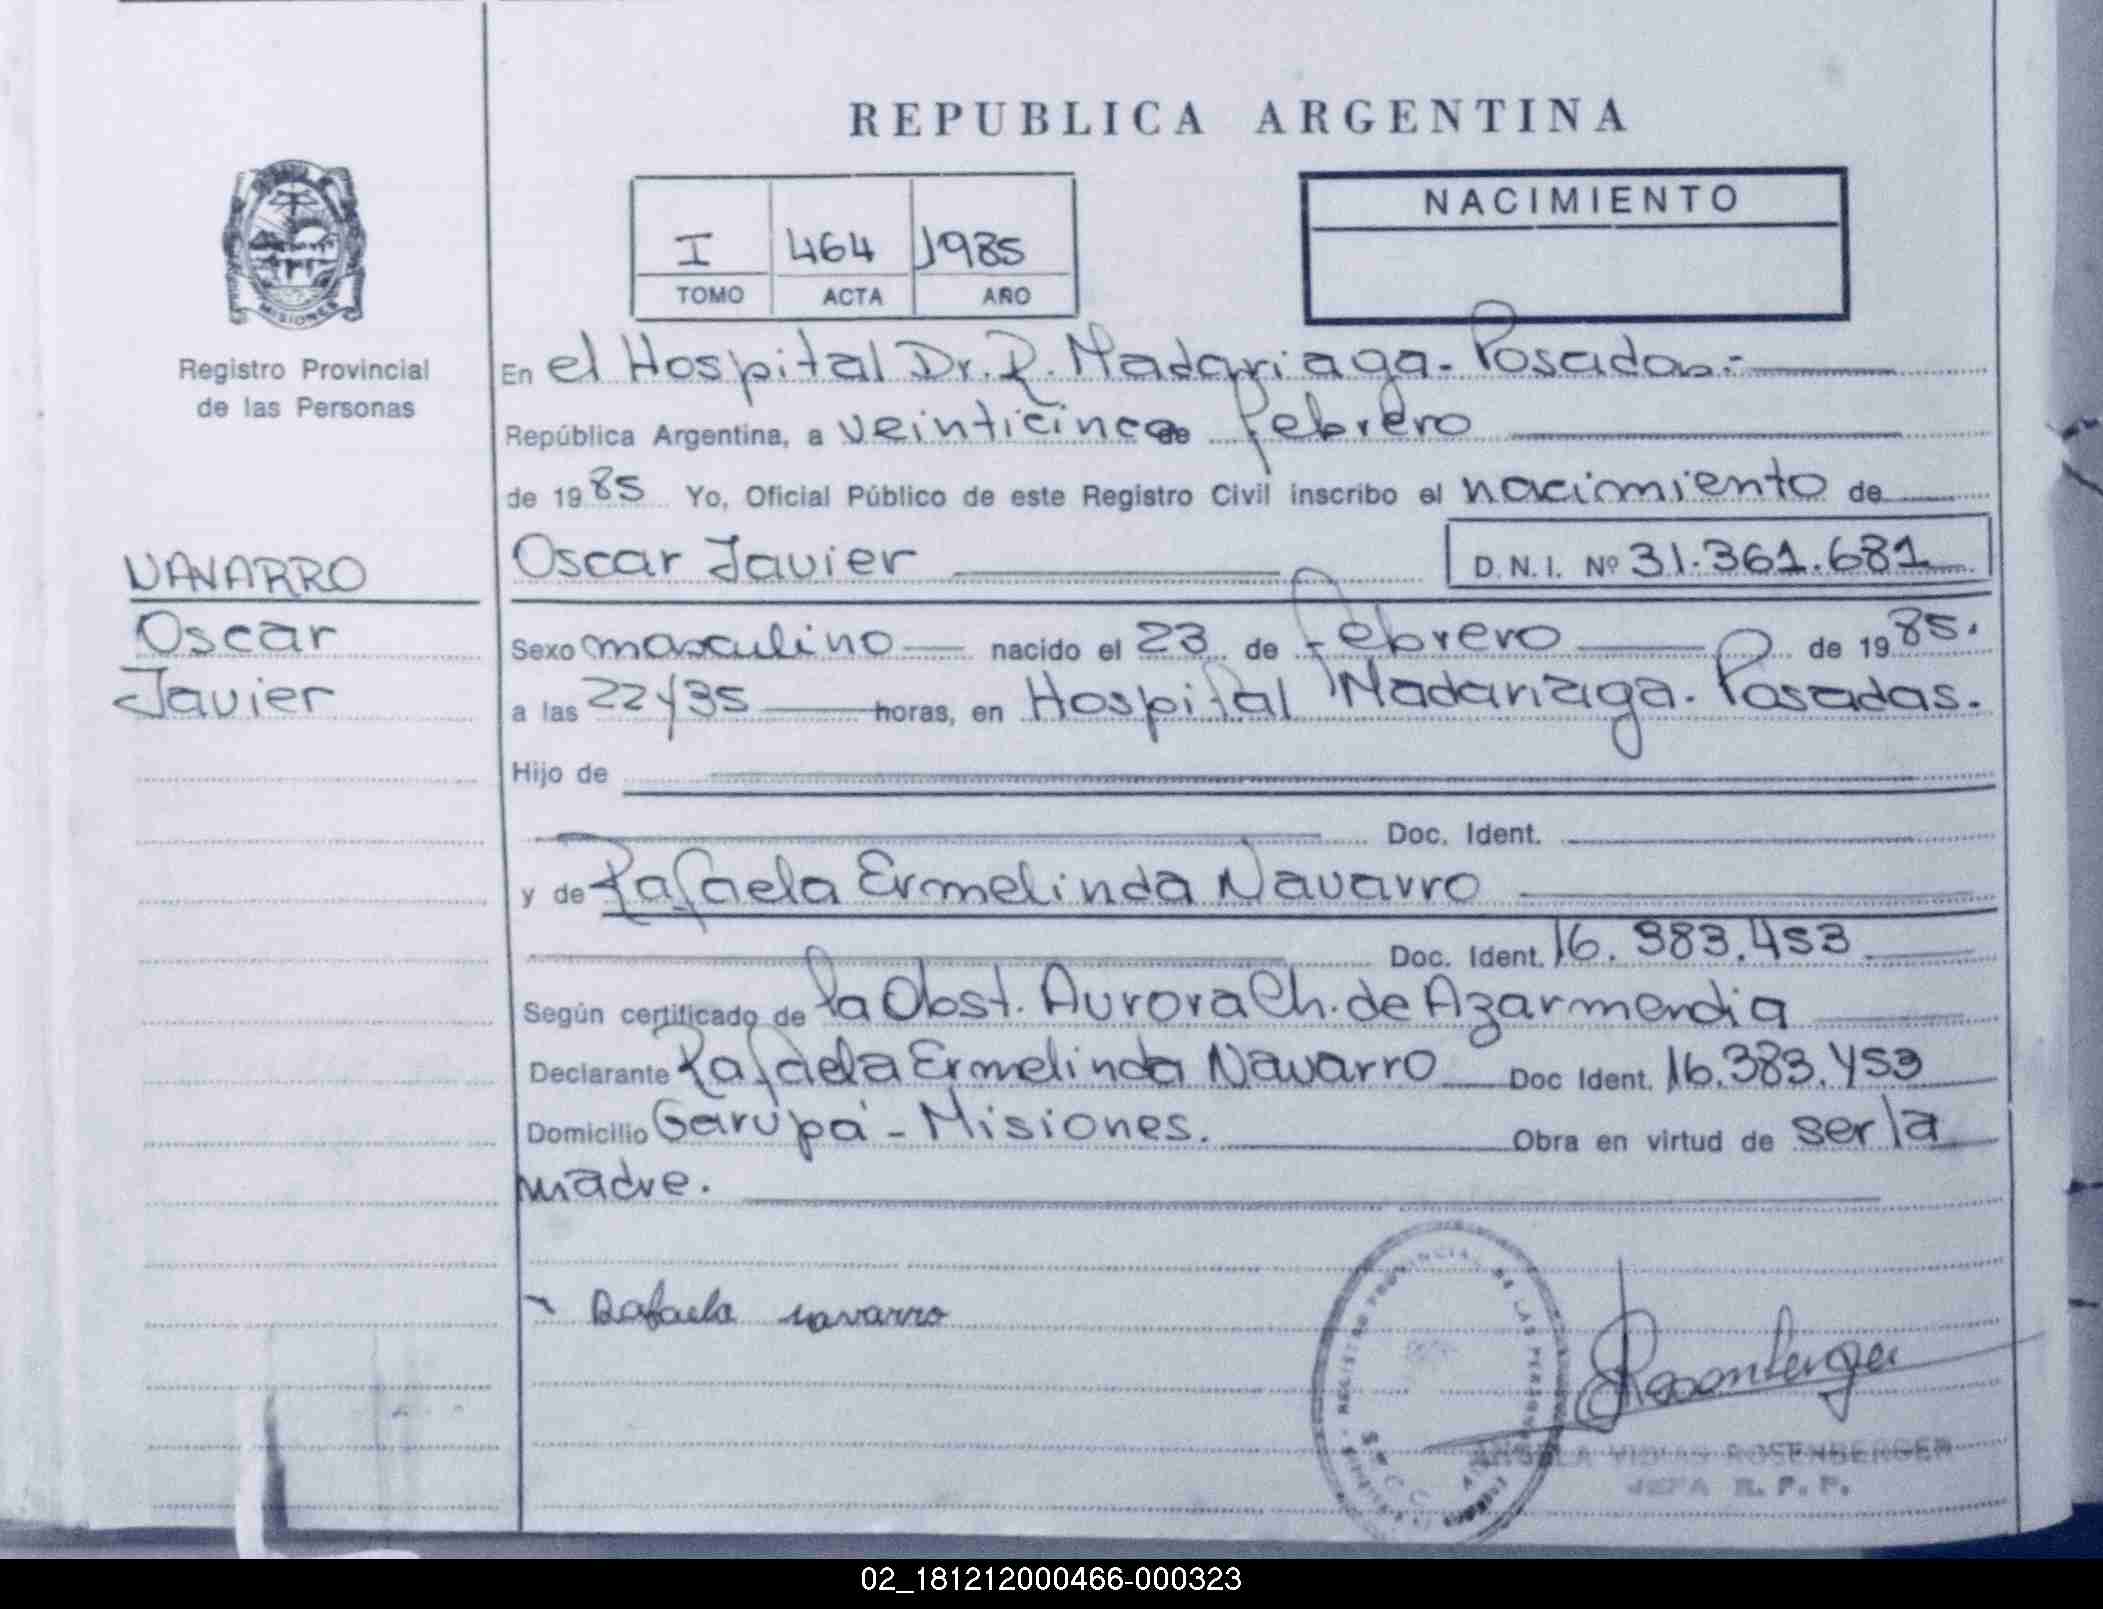 REPUBLICA ARGENTINA
NACIMIENTO
I 464 1985
TOMO ACTA AÑO
MISIONES
Registro Provincial
de las Personas
En el Hospital Dr. R. Madariaga - Posadas.-
República Argentina, a veinticinco de febrero
de 1985 Yo, Oficial Público de este Registro Civil inscribo el nacimiento de
Oscar Javier D.N.I. Nº 31.361.681
NAVARRO
Oscar
Javier
Sexo masculino nacido el 23 de febrero de 1985.
a las 22y35 horas, en Hospital Madariaga. Posadas.
Hijo de
Doc. Ident.
y de Rafaela Ermelinda Navarro
Doc. Ident. 16.383.453
Según certificado de la Obst. Aurora Ch. de Azarmendia
Declarante Rafaela Ermelinda Navarro Doc Ident. 16.383.453
Domicilio Garupá - Misiones. Obra en virtud de ser la
madre.
Rafaela navarro
REGISTRO PROVINCIAL DE LAS PERSONAS
Rosenberger
ROSENBERGER
JEFA R. P. P.
02_181212000466-000323